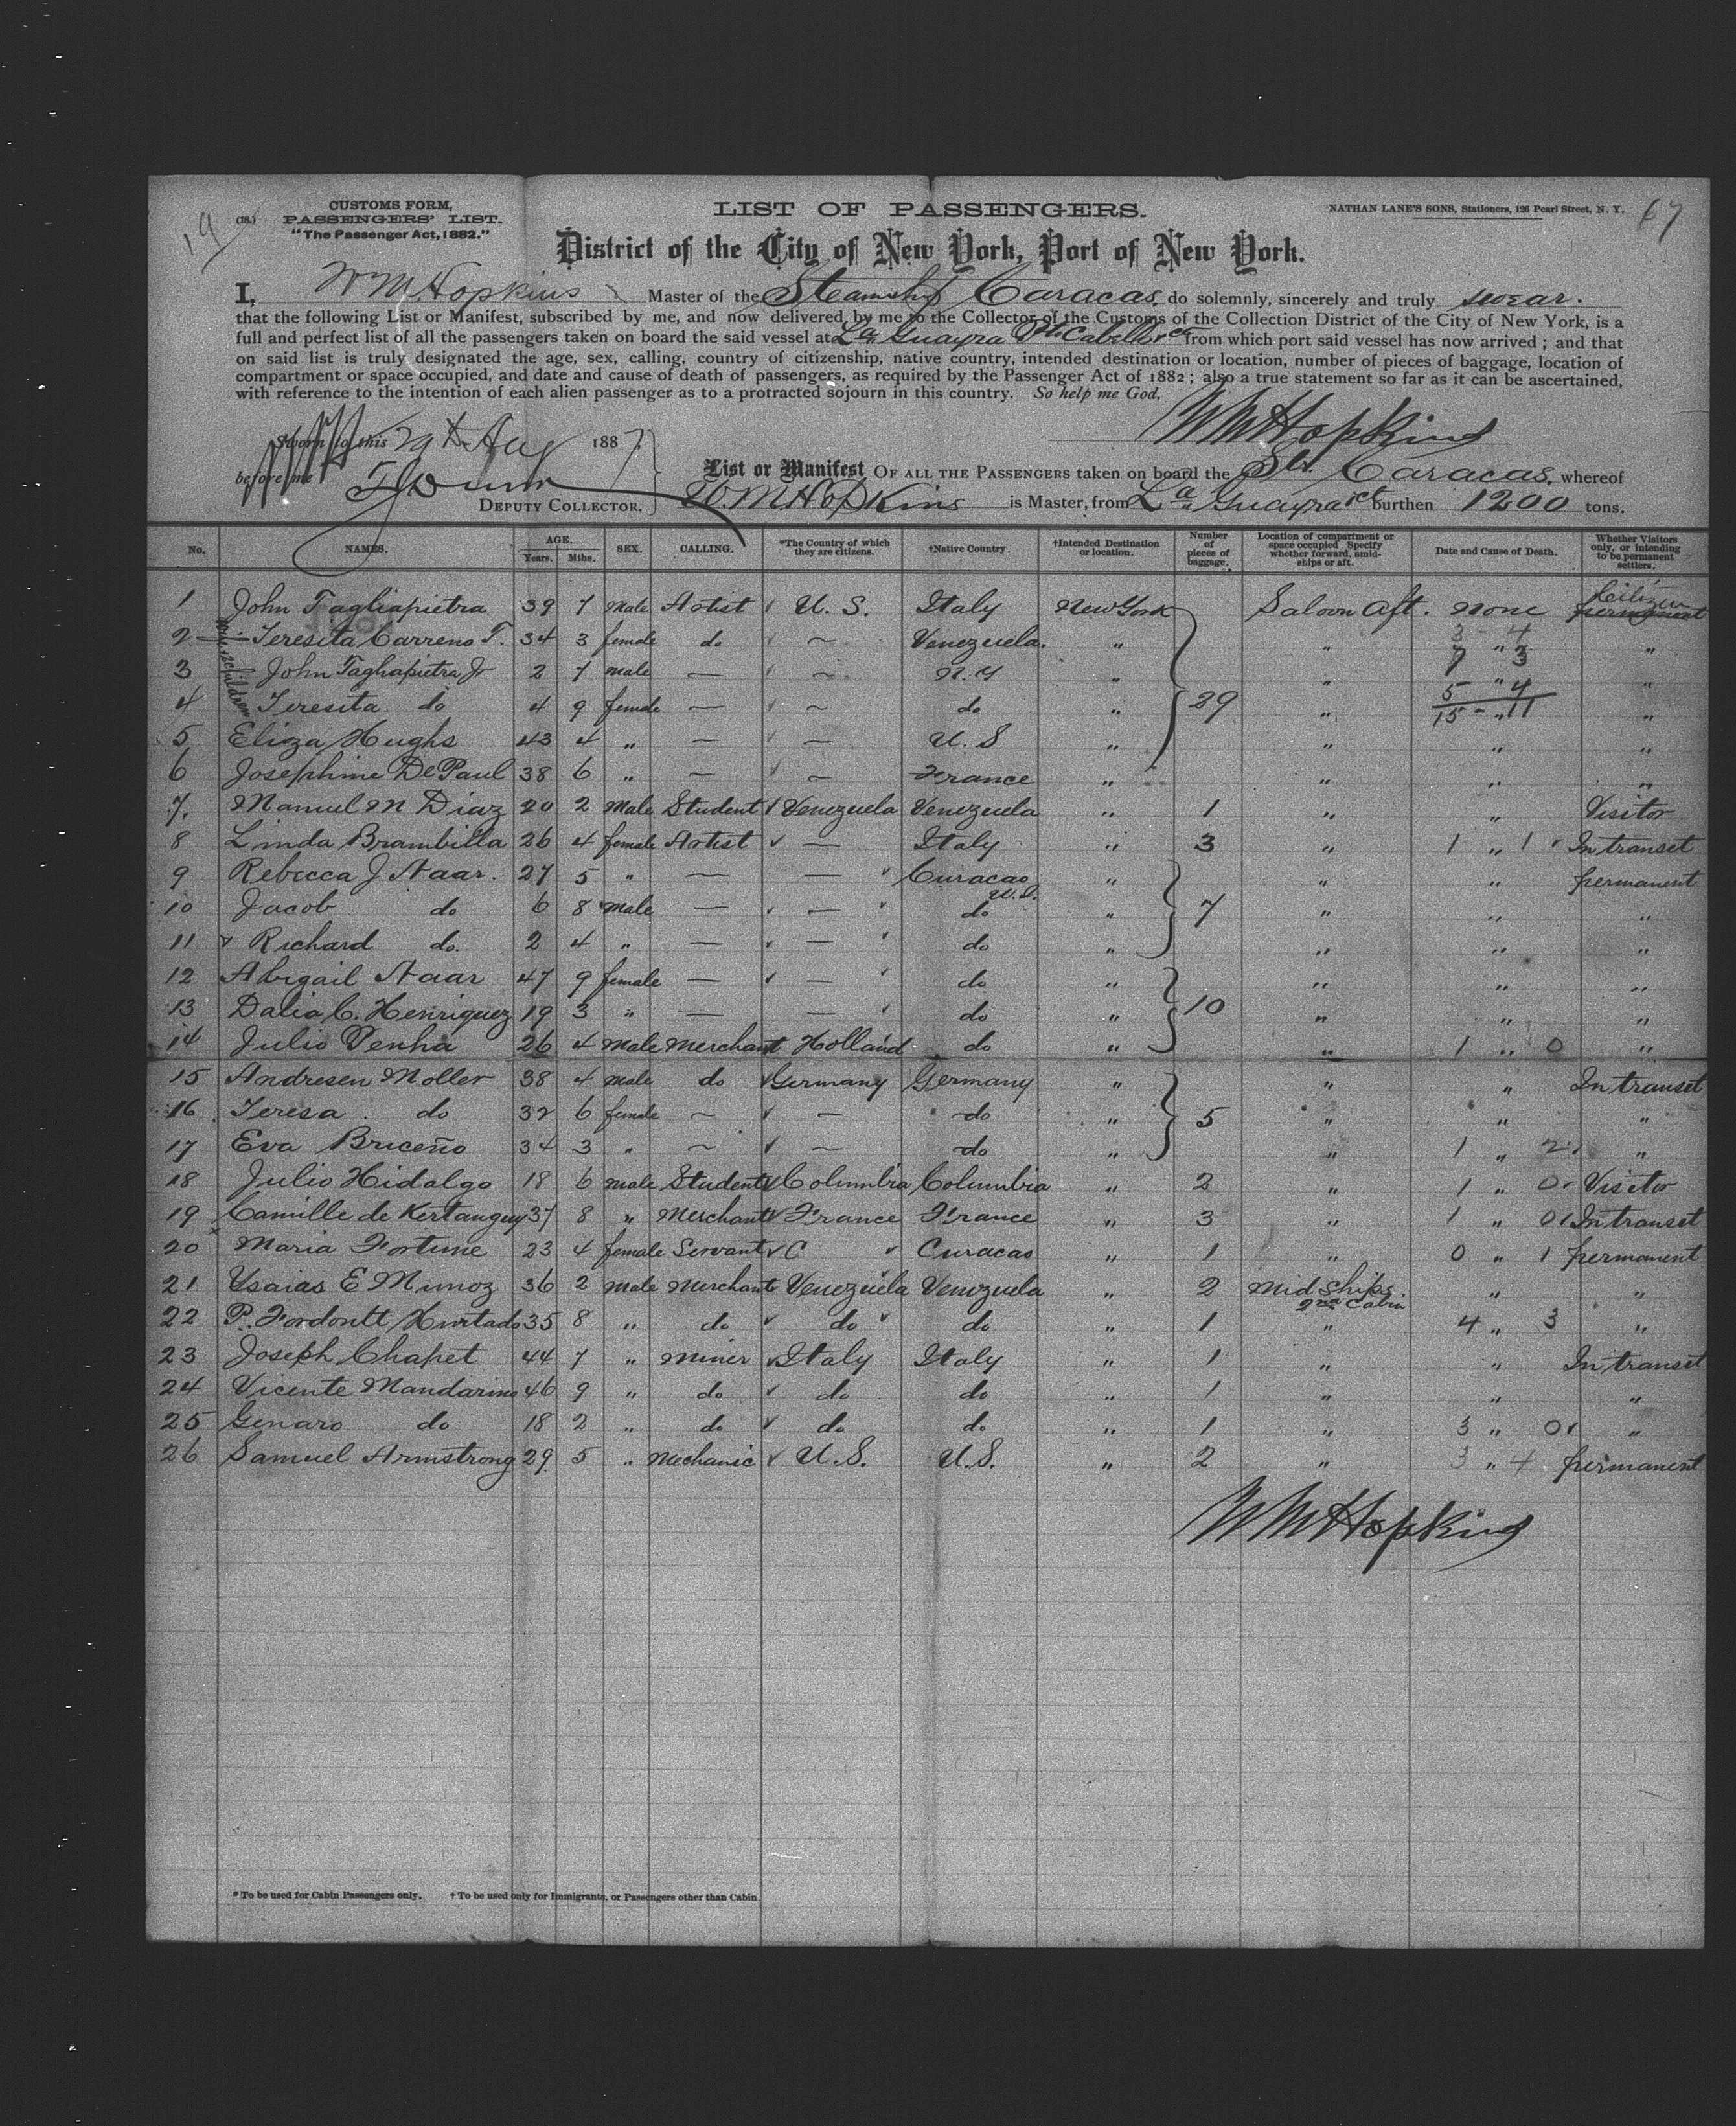 19
(18.)
CUSTOMS FORM,
PASSENGERS' LIST.
"The Passenger Act, 1882."
LIST OF PASSENGERS.
NATHAN LANE'S SONS, Stationers, 126 Pearl Street, N. Y.
67
District of the City of New York, Port of New York.
I, W M Hopkins Master of the Steamship Caracas, do solemnly, sincerely and truly swear.
that the following List or Manifest, subscribed by me, and now delivered by me to the Collector of the Customs of the Collection District of the City of New York, is a
full and perfect list of all the passengers taken on board the said vessel at La Guayra Pto Cabello &c from which port said vessel has now arrived; and that
on said list is truly designated the age, sex, calling, country of citizenship, native country, intended destination or location, number of pieces of baggage, location of
compartment or space occupied, and date and cause of death of passengers, as required by the Passenger Act of 1882; also a true statement so far as it can be ascertained,
with reference to the intention of each alien passenger as to a protracted sojourn in this country. So help me God.
W M Hopkins
Sworn to this 29th Aug 1887
before me
DEPUTY COLLECTOR.
List or Manifest OF ALL THE PASSENGERS taken on board the Str. Caracas, whereof
W. M. Hopkins is Master, from La Guayra &c burthen 1200 tons.
No. NAMES. AGE. Years. Mths. SEX. CALLING. *The Country of which they are citizens. †Native Country †Intended Destination or location. Number of pieces of baggage. Location of compartment or space occupied Specify whether forward, amidships or aft. Date and Cause of Death. Whether Visitors only, or intending to be permanent settlers.
1 John Tagliapietra 39 7 Male Artist U. S. Italy New York Saloon Aft. none Citizen permanent
2 Teresita Carreno T. 34 3 female do ~ Venezuela. " " 3 - 4 "
3 John Tagliapietra Jr 2 7 male — ~ N. Y " " 7 " 3 "
4 Teresita do 4 9 female — ~ do " 29 " 5 " 4 "
15 - " 11
5 Eliza Hughs 43 4 " — — U. S " " " "
6 Josephine De Paul 38 6 " — ~ France " " " "
7. Manuel M Diaz 20 2 Male Student Venezuela Venezuela " 1 " " Visitor
8 Linda Brambilla 26 4 female Artist — Italy " 3 " 1 " 1 In transet
9 Rebecca J Naar. 27 5 " — — Curacao " " " permanent
10 Jacob do 6 8 male — — do U.S. " 7 " " "
11 Richard do. 2 4 " — — do " " " "
12 Abigail Naar 47 9 female — — do " " " "
13 Dalia C. Henriquez 19 3 " — — do " 10 " " "
14 Julio Penha 26 4 male merchant Holland do " " 1 " 0 "
15 Andresen Moller 38 4 male do Germany Germany " " " In transet
16 Teresa do 32 6 female ~ — do " 5 " " "
17 Eva Briceño 34 3 " ~ — do " " 1 " 2 "
18 Julio Hidalgo 18 6 male Student Columbia Columbia " 2 " 1 " 0 Visitor
19 Camille de Kertanguy 37 8 " Merchant France France " 3 " 1 " 0 In transet
20 Maria Fortune 23 4 female Servant C Curacao " 1 " 0 " 1 permanent
21 Ysaias E Munoz 36 2 male Merchant Venezuela Venezuela " 2 Mid Ships 2nd Cabin " "
22 P. Hurtado 35 8 " do do do " 1 " 4 " 3 "
23 Joseph Chapet 44 7 " Miner Italy Italy " 1 " " In transet
24 Vicente Mandarino 46 9 " do do do " 1 " " "
25 Genaro do 18 2 " do do do " 1 " 3 " 0 "
26 Samuel Armstrong 29 5 " Mechanic U. S. U. S. " 2 " 3 " 4 permanent
W M Hopkins
* To be used for Cabin Passengers only. † To be used only for Immigrants, or Passengers other than Cabin.